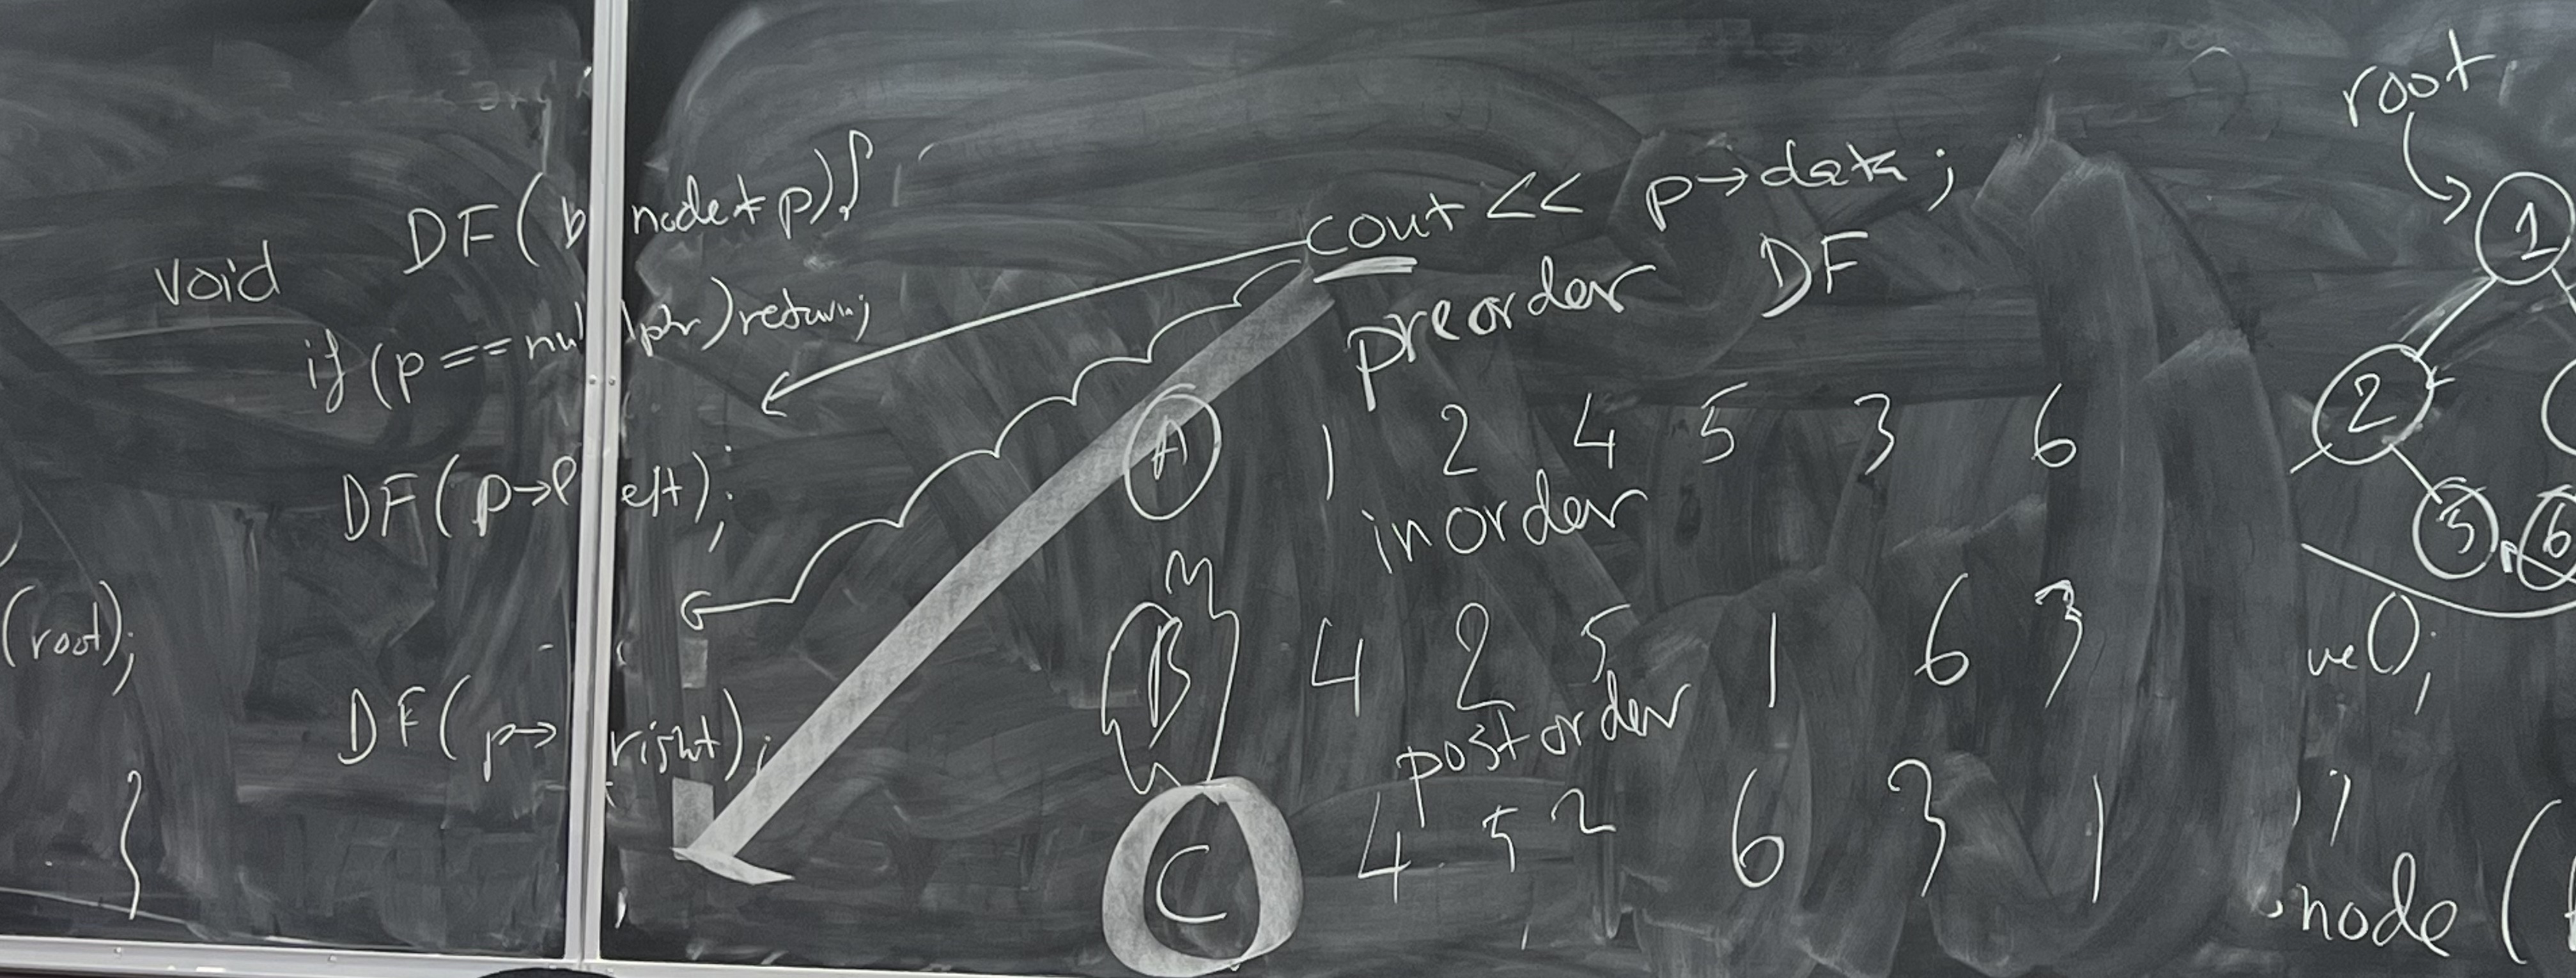 void DF(bnode* p){
if (p == nullptr) return;
DF(p→left);
DF(p→right);
}
(root);
cout << p→data;
preorder DF
A 1 2 4 5 3 6
inorder
B 4 2 5 1 6 3
postorder
C 4 5 2 6 3 1
root
1
2
5 6
ve();
node (